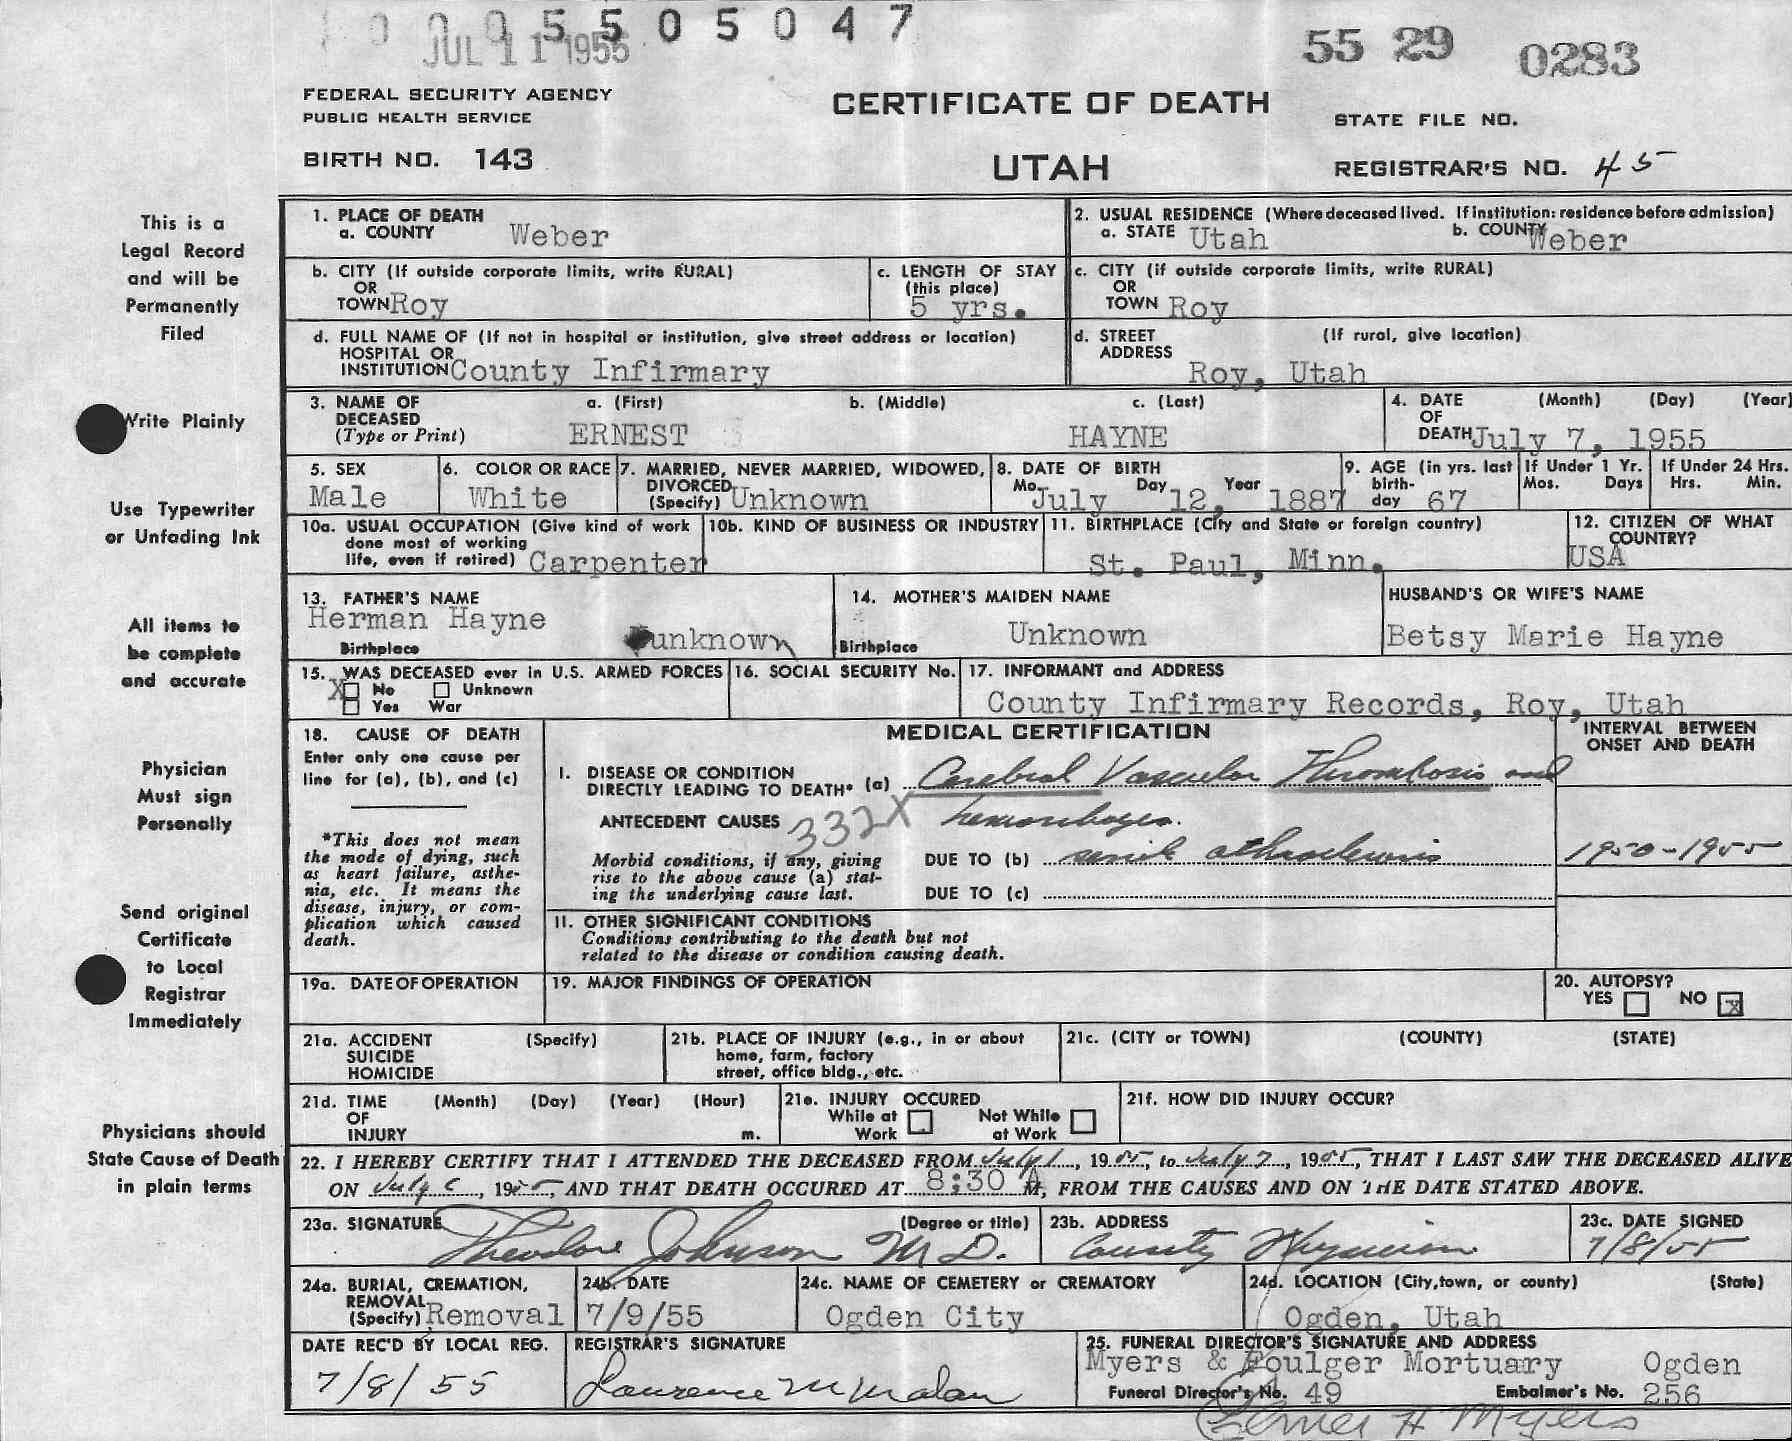 0005505047
JUL 11 1955
55 29 0283
FEDERAL SECURITY AGENCY
PUBLIC HEALTH SERVICE
CERTIFICATE OF DEATH
STATE FILE NO.
BIRTH NO. 143
UTAH
REGISTRAR'S NO. 45
This is a
Legal Record
and will be
Permanently
Filed
Write Plainly
Use Typewriter
or Unfading Ink
All items to
be complete
and accurate
Physician
Must sign
Personally
Send original
Certificate
to Local
Registrar
Immediately
Physicians should
State Cause of Death
in plain terms
1. PLACE OF DEATH
a. COUNTY Weber
2. USUAL RESIDENCE (Where deceased lived. If institution: residence before admission)
a. STATE Utah b. COUNTY Weber
b. CITY (If outside corporate limits, write RURAL)
OR
TOWN Roy
c. LENGTH OF STAY
(this place)
5 yrs.
c. CITY (if outside corporate limits, write RURAL)
OR
TOWN Roy
d. FULL NAME OF (If not in hospital or institution, give street address or location)
HOSPITAL OR
INSTITUTION County Infirmary
d. STREET (If rural, give location)
ADDRESS
Roy, Utah
3. NAME OF a. (First) b. (Middle) c. (Last)
DECEASED
(Type or Print) ERNEST HAYNE
4. DATE (Month) (Day) (Year)
OF
DEATH July 7, 1955
5. SEX
Male
6. COLOR OR RACE
White
7. MARRIED, NEVER MARRIED, WIDOWED,
DIVORCED
(Specify) Unknown
8. DATE OF BIRTH
Mo. Day Year
July 12, 1887
9. AGE (in yrs. last
birth-
day 67
If Under 1 Yr.
Mos. Days
If Under 24 Hrs.
Hrs. Min.
10a. USUAL OCCUPATION (Give kind of work
done most of working
life, even if retired) Carpenter
10b. KIND OF BUSINESS OR INDUSTRY
11. BIRTHPLACE (City and State or foreign country)
St. Paul, Minn.
12. CITIZEN OF WHAT
COUNTRY?
USA
13. FATHER'S NAME
Herman Hayne
Birthplace unknown
14. MOTHER'S MAIDEN NAME
Unknown
Birthplace
HUSBAND'S OR WIFE'S NAME
Betsy Marie Hayne
15. WAS DECEASED ever in U.S. ARMED FORCES
X No Unknown
Yes War
16. SOCIAL SECURITY No.
17. INFORMANT and ADDRESS
County Infirmary Records, Roy, Utah
18. CAUSE OF DEATH
Enter only one cause per
line for (a), (b), and (c)
*This does not mean
the mode of dying, such
as heart failure, asthe-
nia, etc. It means the
disease, injury, or com-
plication which caused
death.
MEDICAL CERTIFICATION
INTERVAL BETWEEN
ONSET AND DEATH
I. DISEASE OR CONDITION
DIRECTLY LEADING TO DEATH* (a) Cerebral Vascular Thrombosis and
ANTECEDENT CAUSES 332X hemorrhages.
Morbid conditions, if any, giving
rise to the above cause (a) stat-
ing the underlying cause last.
DUE TO (b) senile 1950-1955
DUE TO (c)
II. OTHER SIGNIFICANT CONDITIONS
Conditions contributing to the death but not
related to the disease or condition causing death.
19a. DATE OF OPERATION
19. MAJOR FINDINGS OF OPERATION
20. AUTOPSY?
YES NO X
21a. ACCIDENT (Specify)
SUICIDE
HOMICIDE
21b. PLACE OF INJURY (e.g., in or about
home, farm, factory
street, office bldg., etc.
21c. (CITY or TOWN) (COUNTY) (STATE)
21d. TIME (Month) (Day) (Year) (Hour)
OF
INJURY m.
21e. INJURY OCCURED
While at Not While
Work at Work
21f. HOW DID INJURY OCCUR?
22. I HEREBY CERTIFY THAT I ATTENDED THE DECEASED FROM July 1, 1955, to July 7, 1955, THAT I LAST SAW THE DECEASED ALIVE
ON July 6, 1955, AND THAT DEATH OCCURED AT 8:30 A M, FROM THE CAUSES AND ON THE DATE STATED ABOVE.
23a. SIGNATURE (Degree or title)
Theodore Johnson M D.
23b. ADDRESS
County Physician
23c. DATE SIGNED
7/8/55
24a. BURIAL, CREMATION,
REMOVAL
(Specify) Removal
24b. DATE
7/9/55
24c. NAME OF CEMETERY or CREMATORY
Ogden City
24d. LOCATION (City, town, or county) (State)
Ogden, Utah
DATE REC'D BY LOCAL REG.
7/8/55
REGISTRAR'S SIGNATURE
Laurence M Malan
25. FUNERAL DIRECTOR'S SIGNATURE AND ADDRESS
Myers & Foulger Mortuary Ogden
Funeral Director's No. 49 Embalmer's No. 256
Elmer H Myers